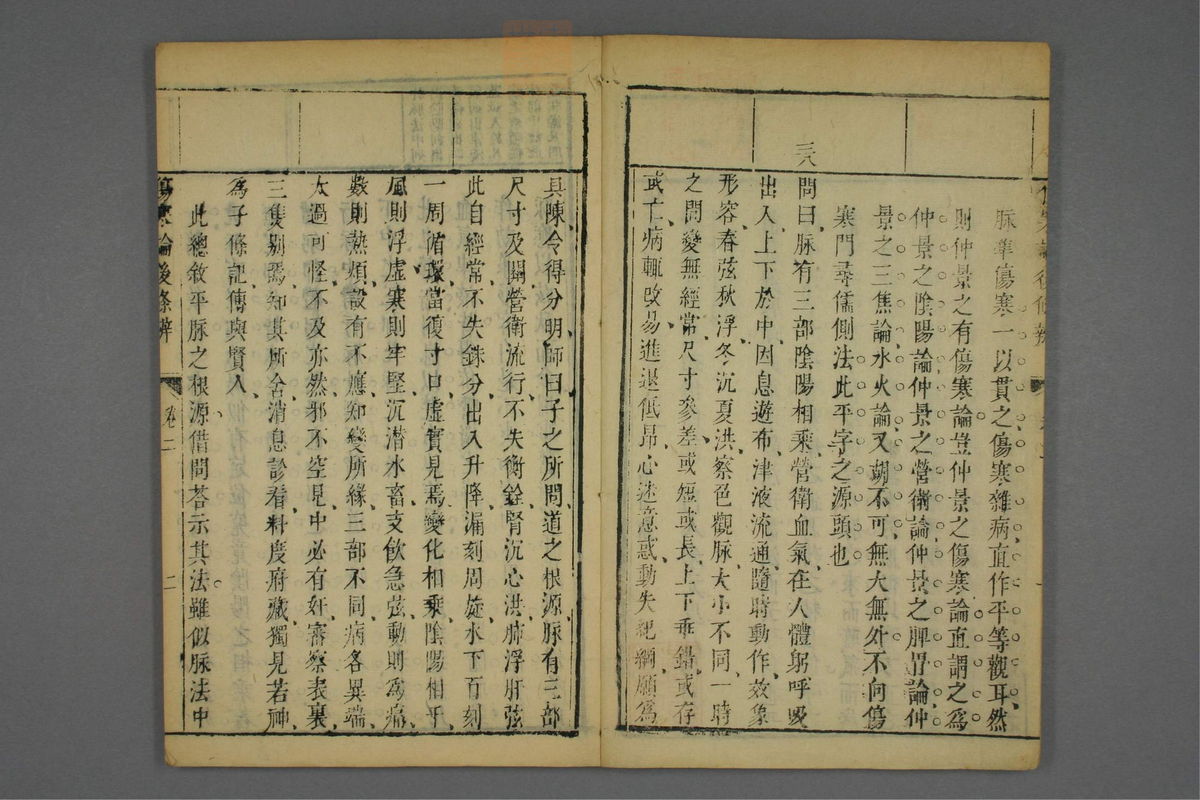 脉準傷寒一以貫之傷寒雜病直作平等觀耳然
則仲景之有傷寒論豈仲景之傷寒論直謂之爲
仲景之陰陽論仲景之營衛論仲景之脾胃論仲
景之三焦論水火論又胡不可無大無外不向傷
寒門尋儒側法此平字之源頭也
三八
問曰脉有三部陰陽相乘營衛血氣在人體躬呼吸
出入上下於中因息遊布津液流通隨時動作效象
形容春弦秋浮冬沉夏洪察色觀脉大小不同一時
之間變無經常尺寸參差或短或長上下乖錯或存
或亡病輒改易進退低昂心迷意惑動失紀綱願爲
具陳令得分明師曰子之所問道之根源脉有三部
尺寸及關營衛流行不失衡銓腎沉心洪肺浮肝弦
此自經常不失銖分出入升降漏刻周旋水下百刻
一周循環當復寸口虛實見焉變化相乘陰陽相干
風則浮虛寒則牢堅沉潛水畜支飲急弦動則爲痛
數則熱煩設有不應知變所緣三部不同病各異端
太過可怪不及亦然邪不空見中必有奸審察表裏
三焦別焉知其所舍消息診看料度府藏獨見若神
爲子條記傳與賢人
此總敘平脉之根源借問荅示其法雖似脉法中
傷寒論後條辨
卷二
二